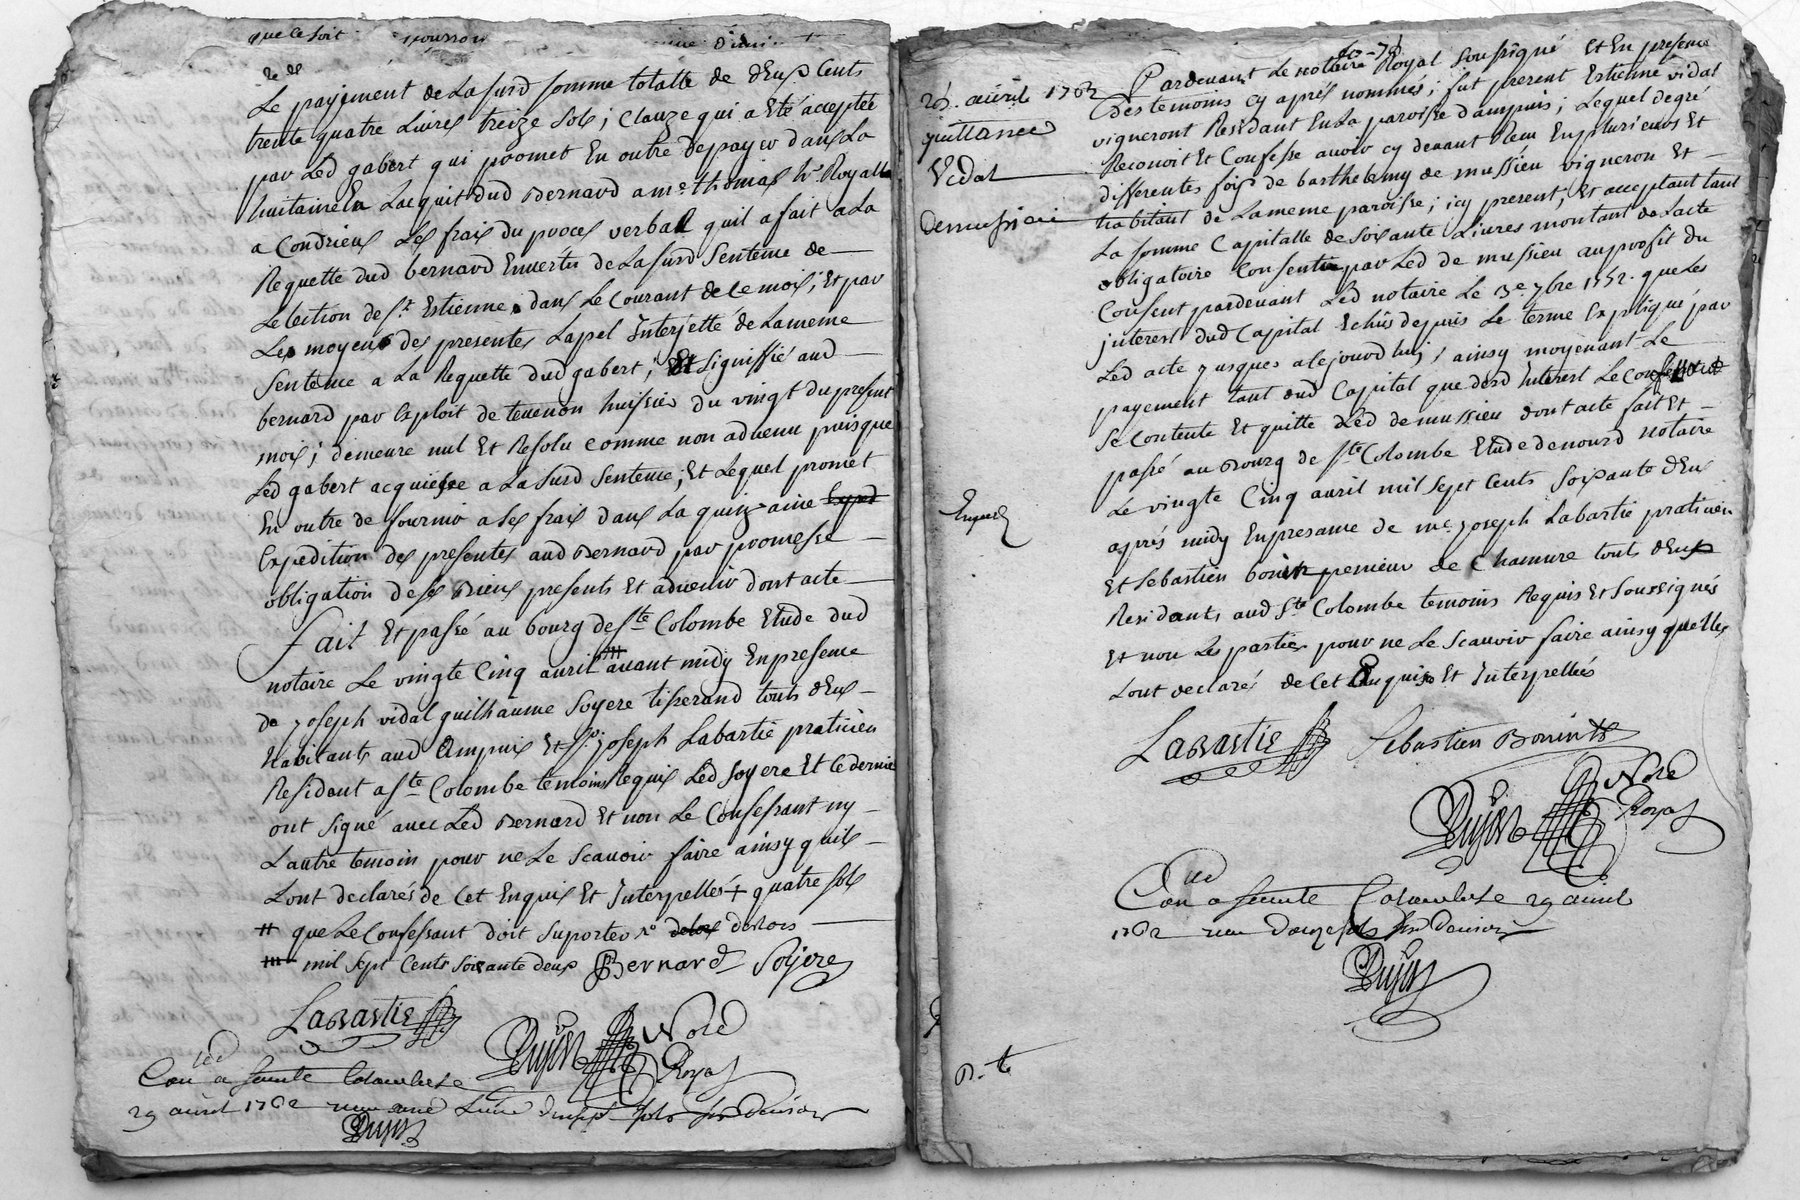 que ce soit
Le payement de La susd somme totalle de deux Cents
trente quatre Livres treize sols; Clauze qui a eté acceptée
par Led gabert qui promet En outre de payer dans La
huitaine En Lacquit dud Bernard a me thomas nre Royal
a Condrieu Les frais du proces verbal quil a fait a La
Requette dud bernard En vertu de La susd Sentence de
Lelection de st Estienne dans Le Courant de Ce mois; Et par
Les moyens des presentes Lapel Interjetté de La meme
Sentence a La Requette dud gabert, Et signiffié aud
bernard par Exploit de tevenon huissier du vingt du present
mois; demeure nul Et Resolu comme non advenu puisque
Led gabert acquiesse a La susd Sentence; Et Lequel promet
En outre de fournir a ses frais dans La quinzaine Exped
Expedition des presentes aud Bernard par promesse
obligation de ses Biens presents Et advenir dont acte
fait Et passé au bourg de ste Colombe Etude dud
notaire Le vingte Cinq avril avant midy En presence
de joseph vidal guilhaume Soyere tisserand touts deux
habitants aud Ampuis Et sr joseph Labartie praticien
Resident a ste Colombe temoins Requis Led Soyere Et Le dernier
ont signé avec Led Bernard Et non Le Confessant ny
Lautre temoin pour ne Le Scavoir faire ainsy quils
Lont declarés de Cet Enquis Et Interpellés + quatre sols
# que Le Confessant doit suporter delos desrois
mil sept Cents soixante deux Bernard Soyere
Labartie
Dujast Nore Royal
Con a sainte Colombe Le
29 avril 1762 reçu une Livre deux sols six deniers
Dujast
25 avril 1762
quittance
Vidal
demussieu
Pardevant Le notaire Royal soussigné Et En presence
Des temoins cy aprés nommés; fut present Estienne vidal
vigneront Residant En La paroisse dampuis; Lequel degré
Reconoit Et Confesse avoir cy devant Receu En plusieurs Et
differentes fois de barthelemy de mussieu vigneron Et
habitant de La meme paroisse; icy present; Et acceptant tant
La somme Capitalle de soixante Livres montant de Lacte
obligatoire Consentie par Led de mussieu au profit du
Confessant pardevant Led notaire Le 3e 7bre 1752. que Les
interest dud Capital Echûs depuis Le terme Expliqué par
Led acte jusques a cejourdhuy, ainsy moyenant Le
payement tant dud Capital que desd Interest Le Confessant
se contente Et quitte Led de mussieu dont acte fait Et
passé au Bourg de ste Colombe Etude de nousd notaire
Le vingte Cinq avril mil sept Cents Soixante deux
aprés midy En presence de me joseph Labartie praticien
Et Sebastien bonin de Chamure touts deux
Residants aud ste Colombe temoins Requis Et Soussignés
Et non Les parties pour ne Le Scavoir faire ainsy quelles
Lont declarés de Cet Enquis Et Interpellées
Labartie Sebastien Bonin
Dujast Nore
Royal
Con a sainte Colombe Le 29 avril
1762 reçu douze sols six deniers
Dujast